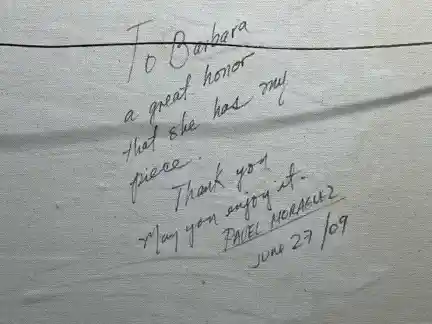 To Barbara
a great honor
that she has my
piece.
Thank you
May you enjoy it.
PAVEL MORAGUEZ
June 27/09